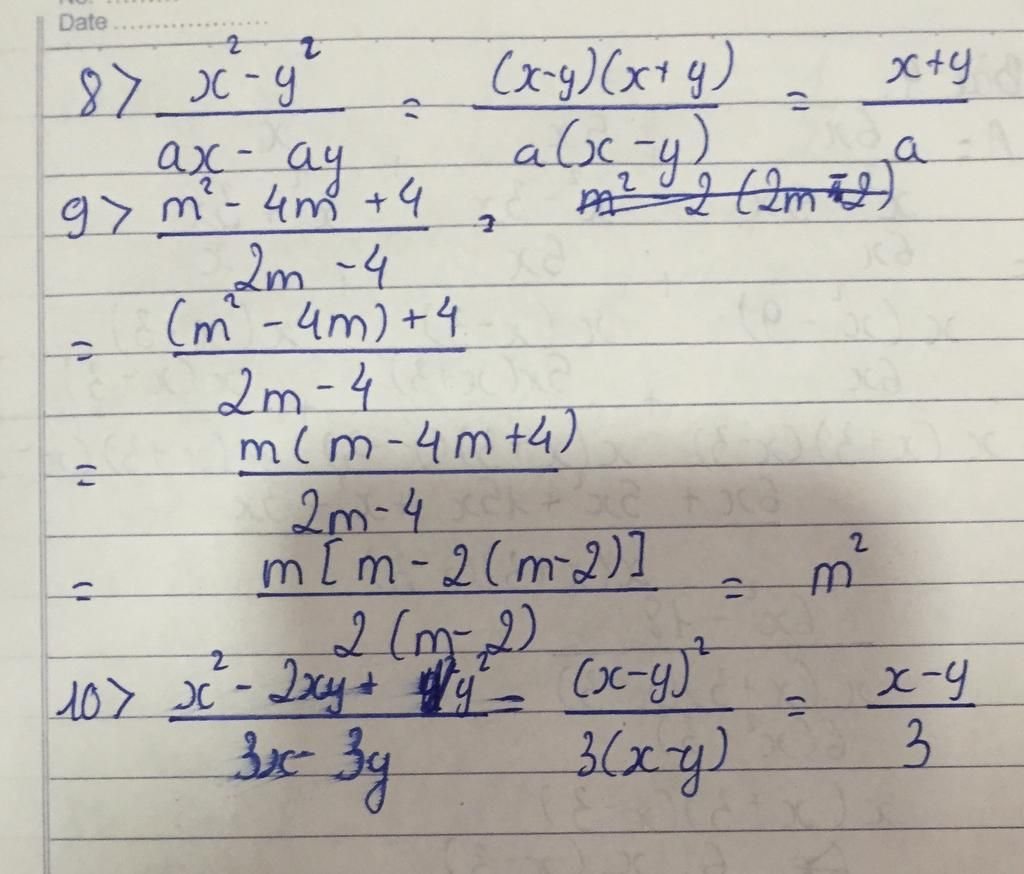 Date
8> x² - y² / ax - ay = (x-y)(x+y) / a(x-y) = x+y / a
9> m² - 4m + 4 / 2m - 4 =
= (m² - 4m) + 4 / 2m - 4
= m(m - 4m + 4) / 2m - 4
= m[m - 2(m-2)] / 2(m-2) = m²
10> x² - 2xy + y² / 3x - 3y = (x-y)² / 3(x-y) = x-y / 3